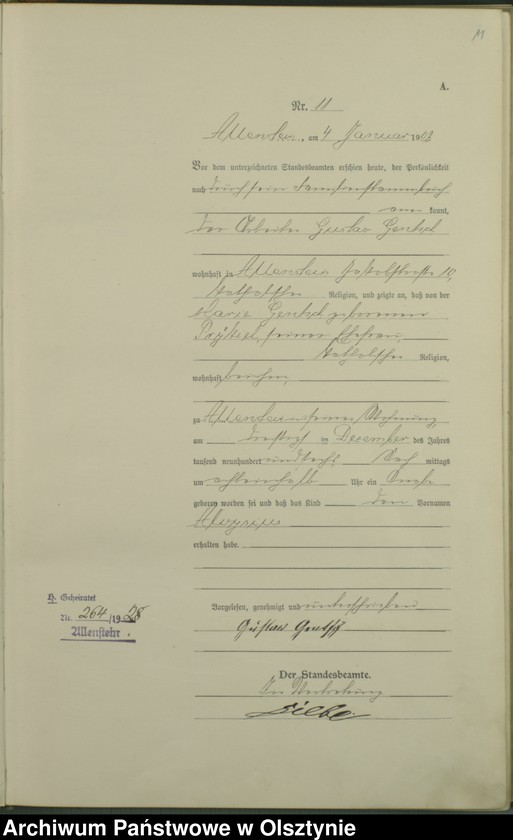 11
A.
Nr. 11
Allenstein, am 4 Januar 190
Vor dem unterzeichneten Standesbeamten erschien heute, der Persönlichkeit
nach durch sein Familienstammbuch
kannt,
der Arbeiter Gustav Gentsch
wohnhaft in Allenstein Jakobstraße 10,
katholischer Religion, und zeigte an, daß von der
Marie Gentsch geborenen
seiner Ehefrau,
katholischer Religion,
wohnhaft bei ihm,
zu Allenstein in seiner Wohnung,
am dreißigsten December des Jahres
tausend neunhundert und Nach mittags
um achteinhalb Uhr ein Knabe
geboren worden sei und daß das Kind den Vornamen
Aloysius
erhalten habe.
H. Geheiratet
Nr. 264/1928
Allenstein.
Vorgelesen, genehmigt und unterschrieben
Gustav Gentsch
Der Standesbeamte.
In Vertretung
Archiwum Państwowe w Olsztynie